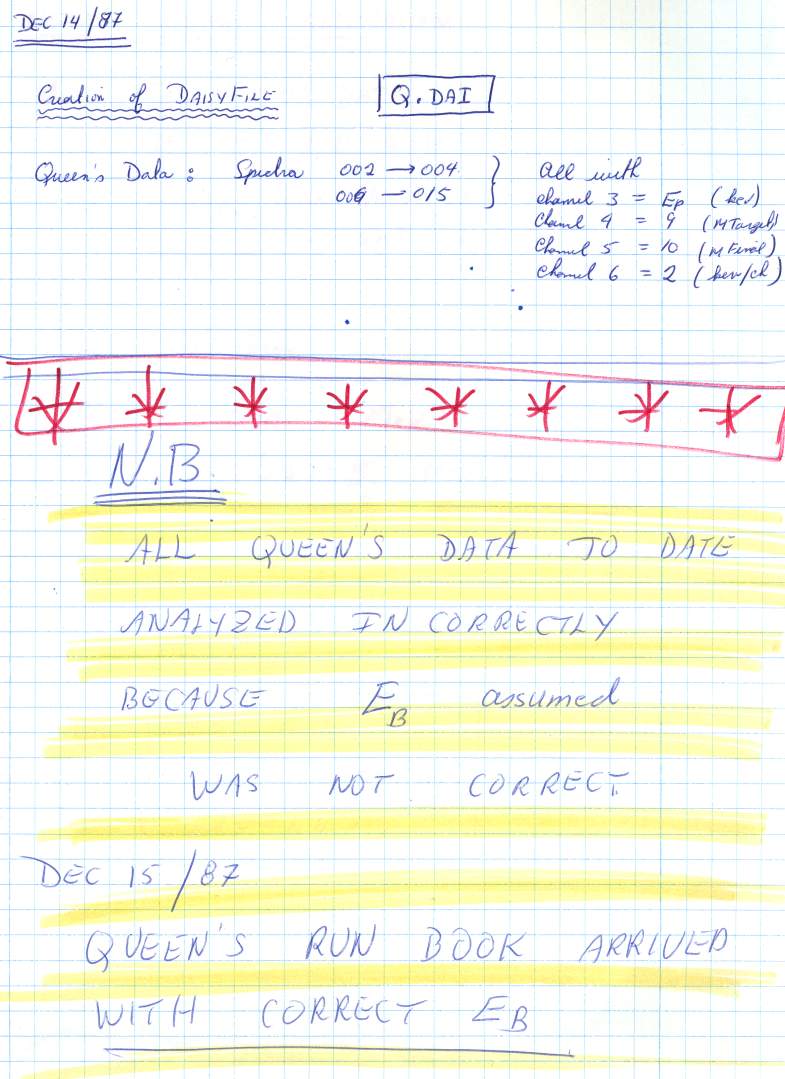 DEC 14/87
Creation of DAISYFILE Q.DAI
Queen's Data : Spectra 002 → 004 } All with
006 → 015 channel 3 = Ep (kev)
Channel 4 = 9 (MTarget)
Channel 5 = 10 (MFinal)
Channel 6 = 2 (kev/ch)
N.B.
ALL QUEEN'S DATA TO DATE
ANALYZED INCORRECTLY
BECAUSE E_B assumed
WAS NOT CORRECT.
DEC 15/87
QUEEN'S RUN BOOK ARRIVED
WITH CORRECT E_B